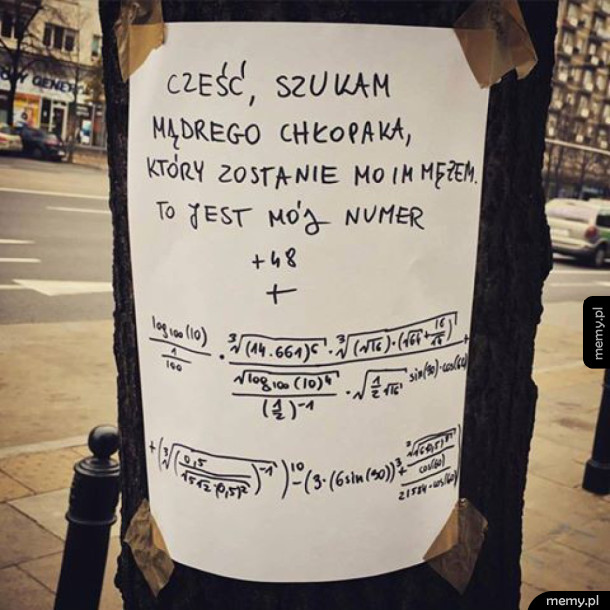 CZEŚĆ, SZUKAM
MĄDREGO CHŁOPAKA,
KTÓRY ZOSTANIE MOIM MĘŻEM.
TO JEST MÓJ NUMER
+48
+
log₁₀₀(10) / (1/100) · ∛(14·661)⁶ · ∛((√16)·(√64+16/16)) / (√log₁₀₀(10)⁴ / (1/2)⁻¹ · √(1/2 √16) sin(90)·cos(60)) +
+(∛(0,5 / √512·(0,5)²)⁻¹)¹⁰ -(3·(6sin(90))³ +
cos(60)
21584·cos(60)
memy.pl
memy.pl